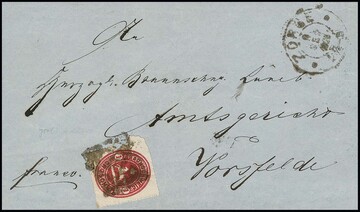 An
Herzogl. Braunschw. Lüneb.
Amtsgericht
Vorsfelde
franco.